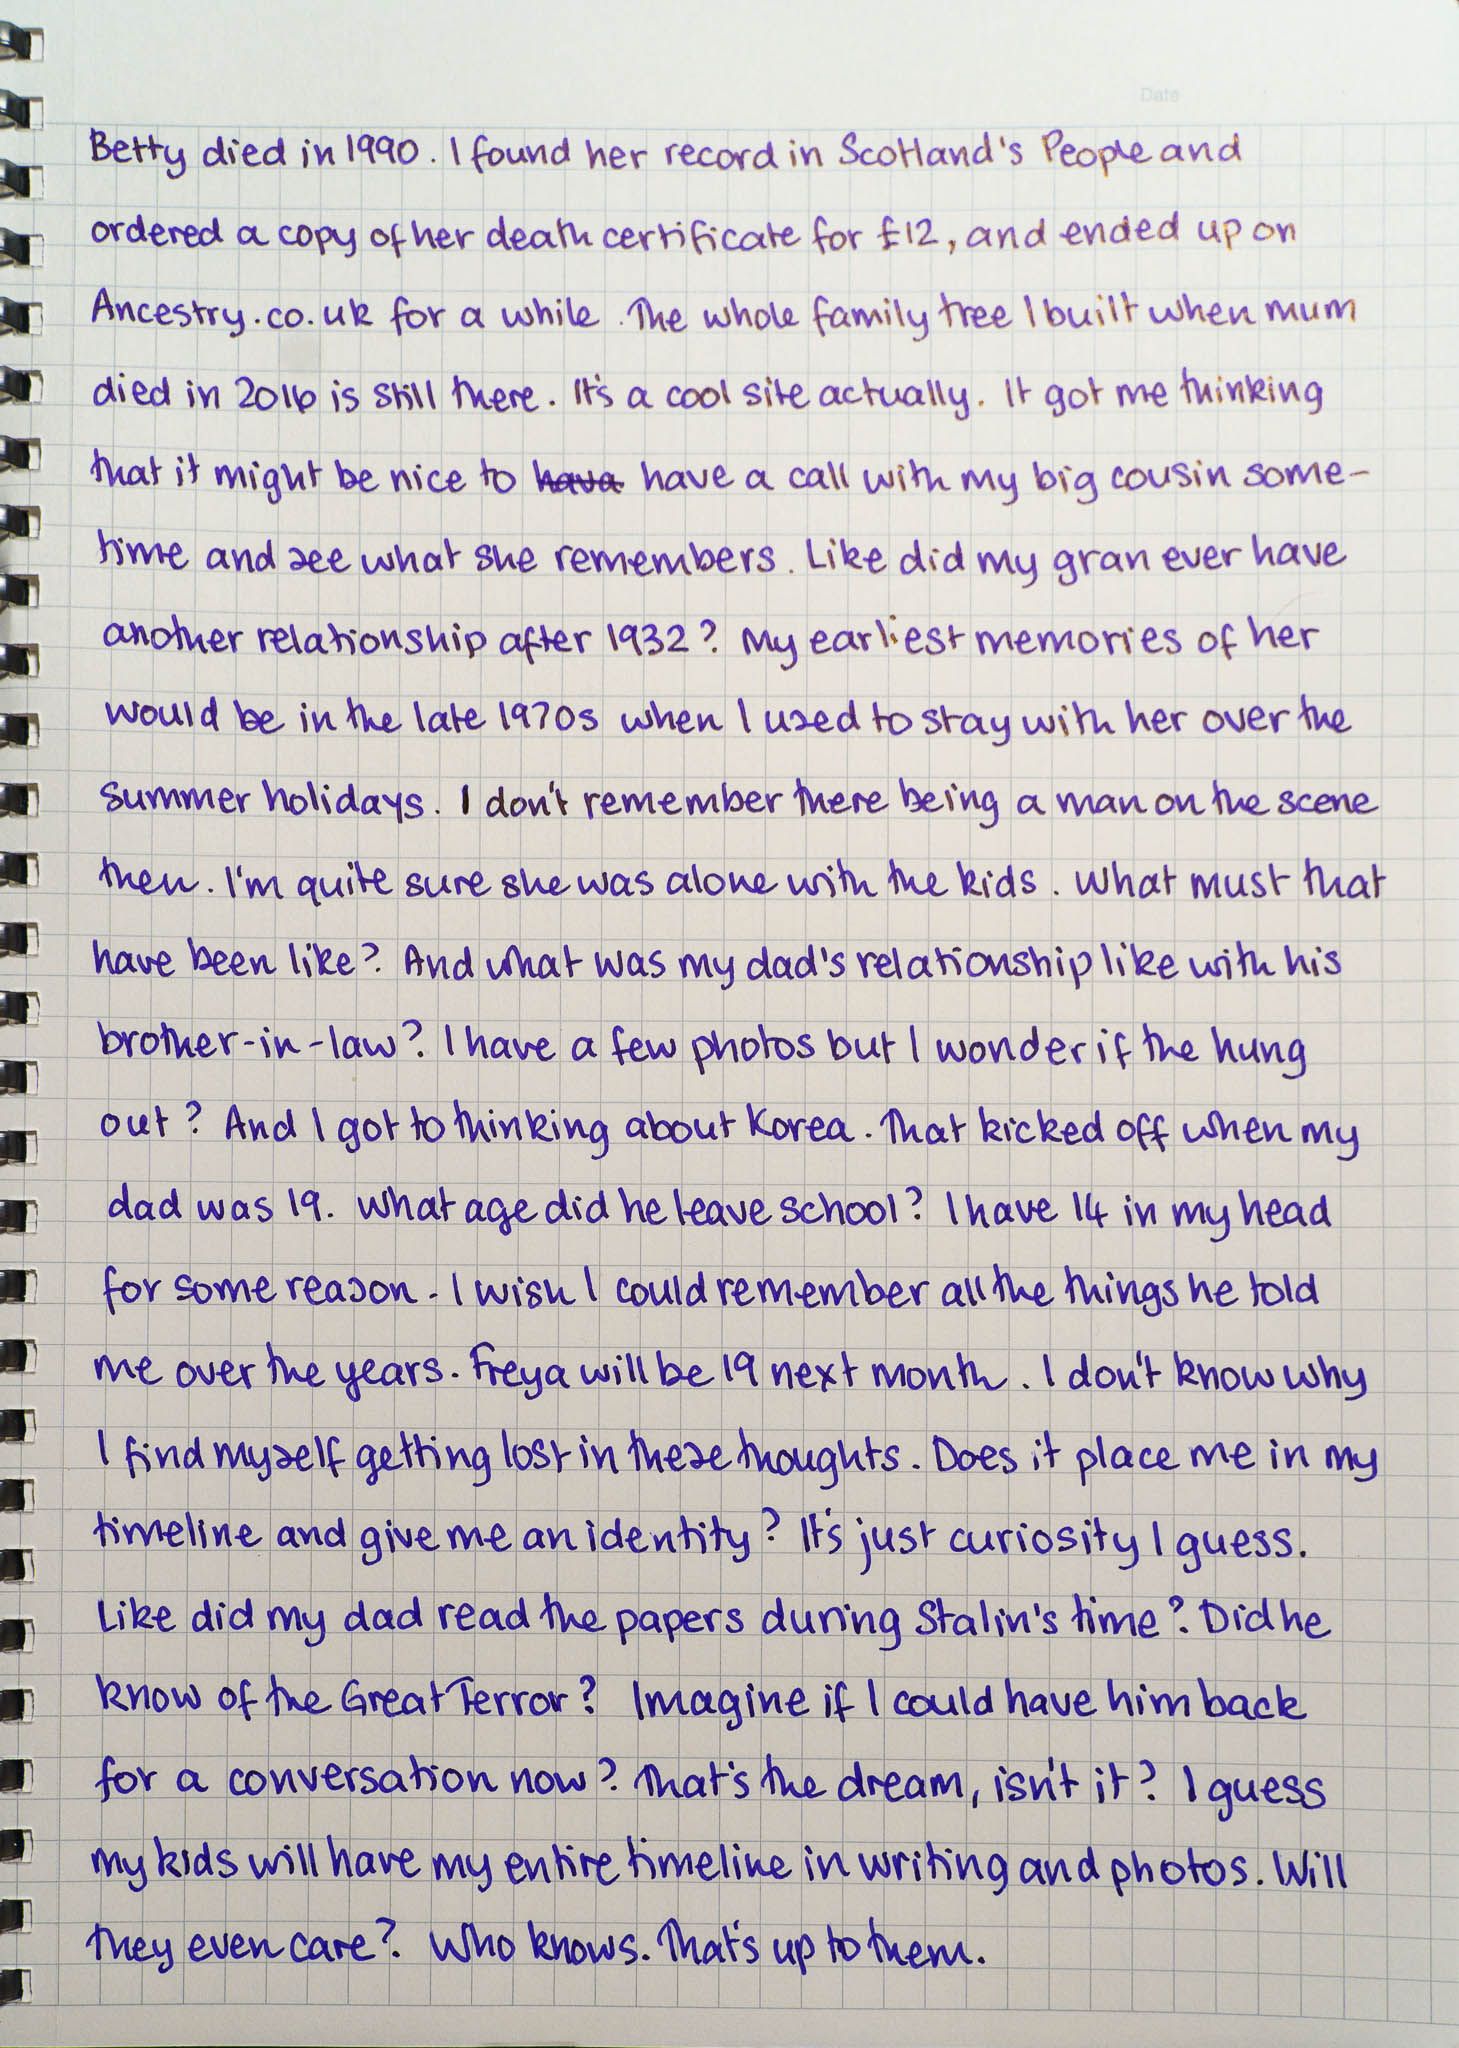 Date
Betty died in 1990. I found her record in Scotland's People and
ordered a copy of her death certificate for £12, and ended up on
Ancestry.co.uk for a while. The whole family tree I built when mum
died in 2016 is still there. It's a cool site actually. It got me thinking
that it might be nice to hava have a call with my big cousin some-
time and see what she remembers. Like did my gran ever have
another relationship after 1932? My earliest memories of her
would be in the late 1970s when I used to stay with her over the
summer holidays. I don't remember there being a man on the scene
then. I'm quite sure she was alone with the kids. What must that
have been like? And what was my dad's relationship like with his
brother-in-law? I have a few photos but I wonder if the hung
out? And I got to thinking about Korea. That kicked off when my
dad was 19. What age did he leave school? I have 14 in my head
for some reason. I wish I could remember all the things he told
me over the years. Freya will be 19 next month. I don't know why
I find myself getting lost in these thoughts. Does it place me in my
timeline and give me an identity? It's just curiosity I guess.
Like did my dad read the papers during Stalin's time? Did he
know of the Great Terror? Imagine if I could have him back
for a conversation now? That's the dream, isn't it? I guess
my kids will have my entire timeline in writing and photos. Will
they even care? Who knows. That's up to them.